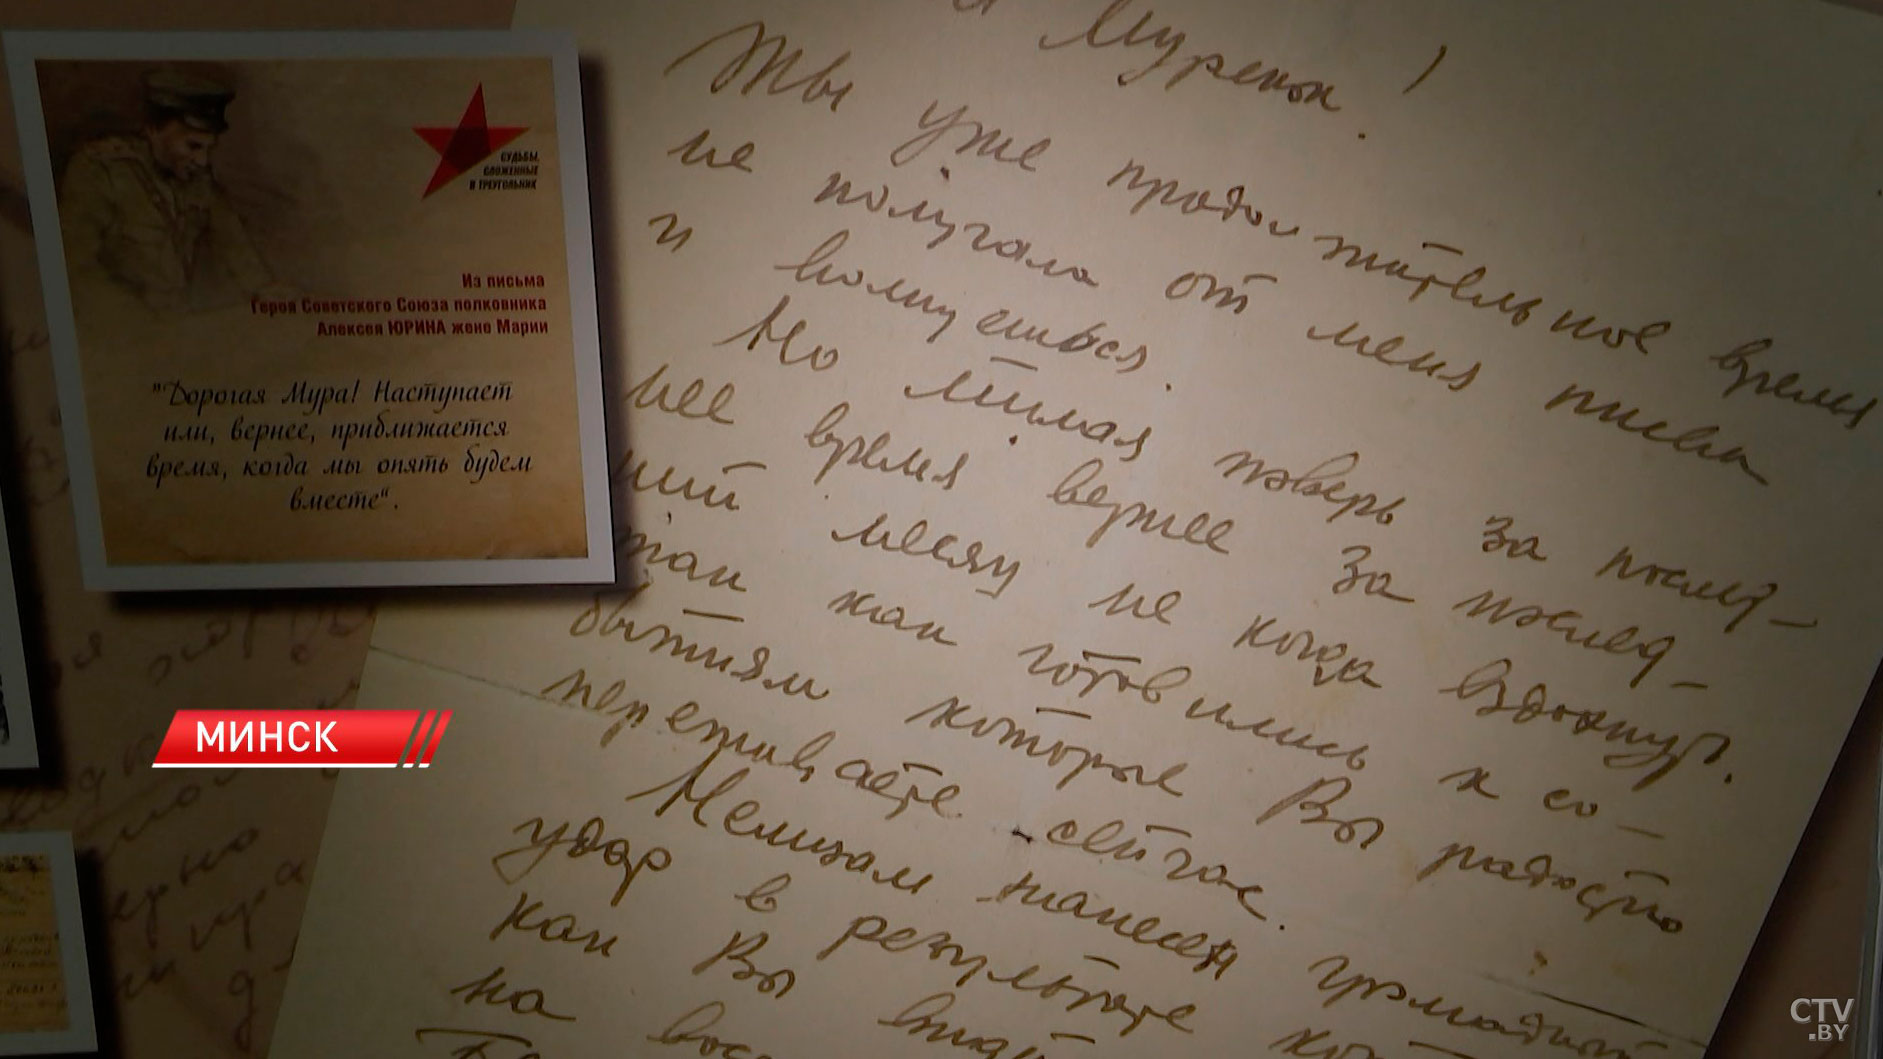 СУДЬБЫ,
СЛОЖЕННЫЕ
В ТРЕУГОЛЬНИК
Из письма
Героя Советского Союза полковника
Алексея ЮРИНА жене Марии
"Дорогая Мура! Наступает
или, вернее, приближается
время, когда мы опять будем
вместе".
Муренок!
Ты уже продолжительное время
не получала от меня писем
и волнуешься.
Но милая поверь за послед-
нее время вернее за послед-
ний месяц не когда вздохнуть.
так как готовились к со-
бытиям которые Вы радостно
переживаете сейчас.
Немцам нанесен громадный
удар в результате
как Вы
на
МИНСК
CTV
.BY